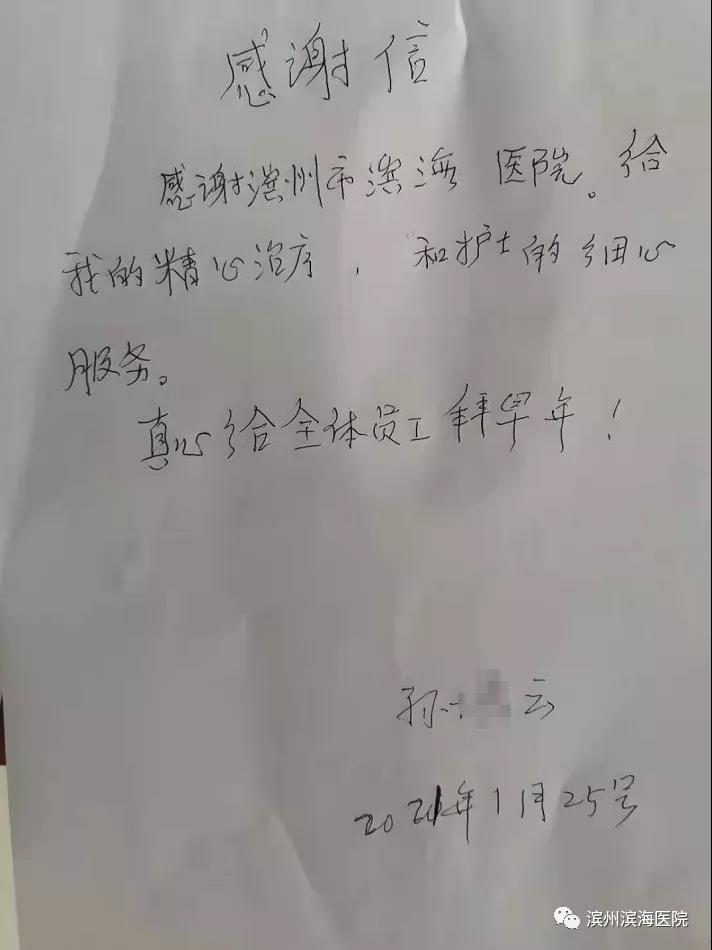 感谢信
感谢滨州市滨海医院。给
我的精心治疗，和护士的细心
服务。
真心给全体员工拜早年！
孙 云
2021年1月25号
滨州滨海医院